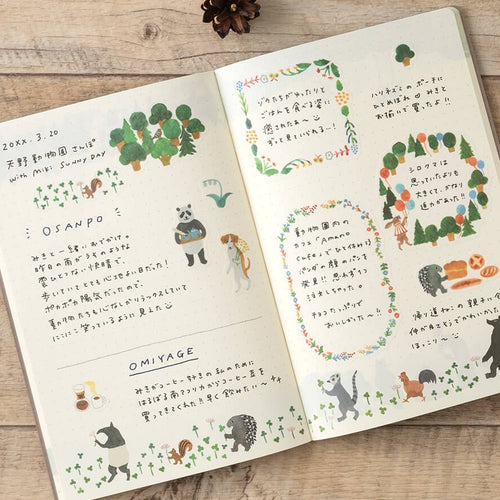 20XX. 3. 20
天野動物園さんぽ
with Miki SUNNY DAY
OSANPO
みきと一緒におでかけ。
昨日の雨がうそのような
雲ひとつない快晴で、
歩いていてとても心地よい日だ！
ポカポカ陽気だったので、
動物たちも心なしかリラックスしていて
にこにこ笑っているように見えた
OMIYAGE
みきがコーヒー好きの私のために
はるばる南アフリカからコーヒー豆を
買ってきてくれた!! 早く飲みたい〜
ゾウたちがゆったりと
ごはんを食べる姿に
癒されたぁ〜
ずって見ていられる〜！
動物園内の
カフェ「Amano
Cafe」でひと休み
パンダの顔のパンを
発見!! 思わず
チョコたっぷりで
おいしかった〜!!
ハリネズミのポーチに
ひとめぼれ みきと
お揃いで買ったよ!!
シロクマは
思っていたよりも
大きくて、かなり
迫力があった!!
帰り道ねこの親子に
仲が良さそうでかわいかった
ほっこり〜